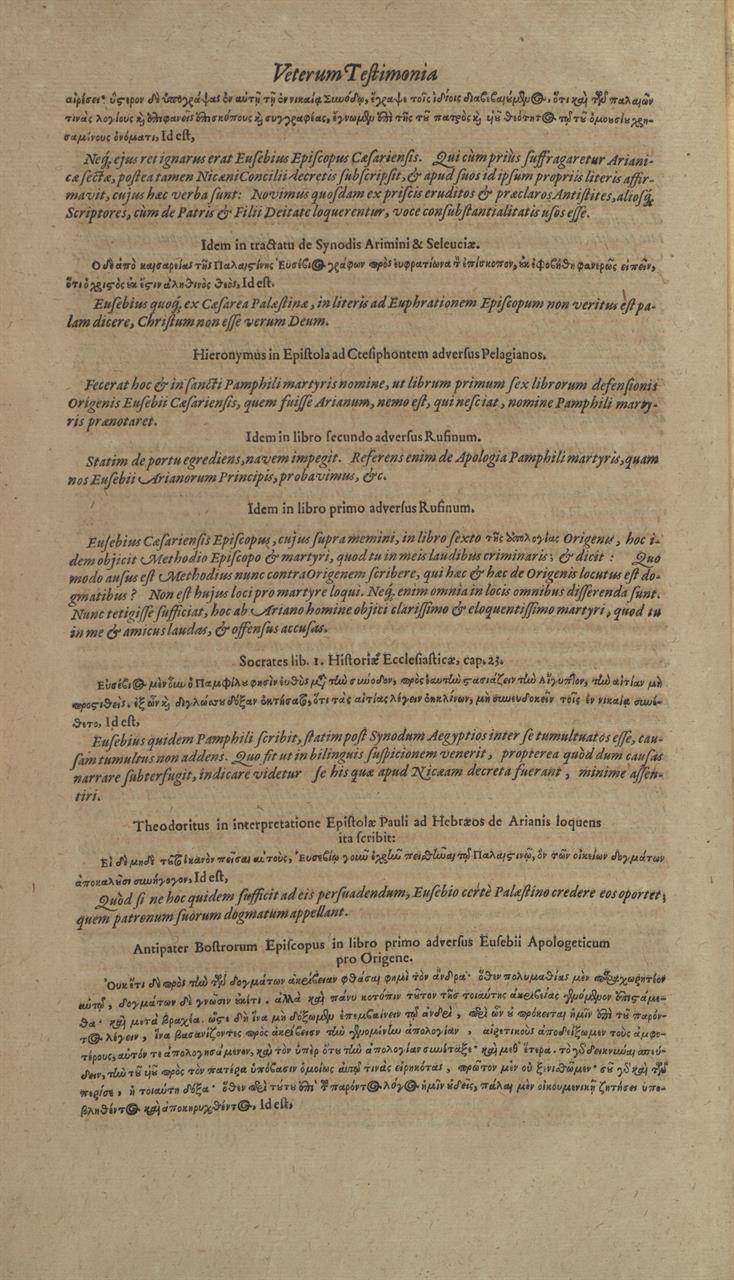 Veterum Testimonia
αἱρέσει· ὕστερον δὲ ὑπογράψας ἐν αὐτῇ τῇ ἐν νικαίᾳ Συνόδῳ, ἔγραψε τοῖς ἰδίοις διαβεβαιούμενος, ὅτι καὶ τῶν παλαιῶν
τινὰς λογίους κỳ ἐπιφανεῖς ἐπισκόπους κỳ συγγραφέας, ἔγνωμεν ἐπὶ τῆς τοῦ πατρὸς κỳ υἱοῦ θεότητος τῷ τοῦ ὁμοουσίου χρη-
σαμένους ὀνόματι, Id eſt,
Neq́; ejus rei ignarus erat Euſebius Epiſcopus Cæſarienſis. Qui cùm priùs ſuffragaretur Ariani-
cæ ſectæ, poſtea tamen Nicæni Concilii decretis ſubſcripſit, & apud ſuos id ipſum propriis literis affir-
mavit, cujus hæc verba ſunt: Novimus quoſdam ex priſcis eruditos & præclaros Antiſtites, alioſq́;
Scriptores, cùm de Patris & Filii Deitate loquerentur, voce conſubſtantialitatis uſos eſſe.
Idem in tractatu de Synodis Arimini & Seleuciæ.
Ο δὲ ἀπὸ καισαρείας τῆς Παλαιστίνης Ἐυσέβιος γράφων πρὸς ἐυφρατίωνα τὸν ἐπίσκοπον, ἐκ ἐφοβήθη φανερῶς εἰπεῖν,
ὅτι ὁ χριςὸς ἐκ ἔςιν ἀληθινὸς θεὸς, Id eſt.
Euſebius quoq́; ex Cæſarea Palæſtinæ, in literis ad Euphrationem Epiſcopum non veritus eſt pa-
lam dicere, Chriſtum non eſſe verum Deum.
Hieronymus in Epiſtola ad Cteſiphontem adverſus Pelagianos.
Fecerat hoc & in ſancti Pamphili martyris nomine, ut librum primum ſex librorum defenſionis
Origenis Euſebii Cæſarienſis, quem fuiſſe Arianum, nemo eſt, qui neſciat, nomine Pamphili marty-
ris prænotaret.
Idem in libro ſecundo adverſus Rufinum.
Statim de portu egrediens, navem impegit. Referens enim de Apologia Pamphili martyris, quam
nos Euſebii Arianorum Principis, probavimus, &c.
Idem in libro primo adverſus Rufinum.
Euſebius Cæſarienſis Epiſcopus, cujus ſupra memini, in libro ſexto τῆς ἀπολογίας Origenis, hoc i-
dem objicit Methodio Epiſcopo & martyri, quod tu in meis laudibus criminaris; & dicit: Quo
modo auſus eſt Methodius nunc contra Origenem ſcribere, qui hæc & hæc de Origenis locutus eſt do-
gmatibus? Non eſt hujus loci pro martyre loqui. Neq́; enim omnia in locis omnibus differenda ſunt.
Nunc tetigiſſe ſufficiat, hoc ab Ariano homine objici clariſſimo & eloquentiſſimo martyri, quod tu
in me & amicus laudas, & offenſus accuſas.
Socrates lib. 1. Hiſtoriæ Eccleſiaſticæ, cap. 23.
Εὐσέβιος μὲν οὖν ὁ Παμφίλου φησὶν εὐθὺς μετὰ τὴν σύνοδον, πρὸς ἑαυτὴν ςασιάζειν τὴν Αἴγυπτον, τὴν αἰτίαν μὴ
προςτιθείς. ἐξ ὧν κỳ διγλώσσου δόξαν ἐκτήσατο, ὅτι τὰς αἰτίας λέγειν ἐκκλίνων, μὴ συνευδοκεῖν τοῖς ἐν νικαίᾳ συνέ-
θετο, Id eſt,
Euſebius quidem Pamphili ſcribit, ſtatim poſt Synodum Aegyptios inter ſe tumultuatos eſſe, cau-
ſam tumultus non addens. Quo fit ut in bilinguis ſuſpicionem venerit, propterea quòd dum cauſas
narrare ſubterfugit, indicare videtur ſe his quæ apud Nicæam decreta fuerant, minimè aſſen-
tiri.
Theodoritus in interpretatione Epiſtolæ Pauli ad Hebræos de Arianis loquens
ita ſcribit:
Εἰ δὲ μηδὲ τοῦτο ἱκανὸν πεῖσαι αὐτοὺς, Ἐυσεβίῳ γοῦν ἐχρῆν πεισθῆναι τῷ Παλαιςίνῳ, ὃν τῶν οἰκείων δογμάτων
ἀποκαλοῦσι συνήγορον, Id eſt,
Quòd ſi ne hoc quidem ſufficit ad eis perſuadendum, Euſebio certè Palæſtino credere eos oportet;
quem patronum ſuorum dogmatum appellant.
Antipater Boſtrorum Epiſcopus in libro primo adverſus Euſebii Apologeticum
pro Origene.
Ουκέτι δὲ πρὸς τὴν τῶν δογμάτων ἀκρίβειαν φθάσαι φημὶ τὸν ἄνδρα· ὅθεν πολυμαθίας μὲν παραχωρητέον
αὐτῷ, δογμάτων δὲ γνῶσιν ἐκέτι. ἀλλὰ καὶ πάνυ κατόπιν τοῦτον τῆς τοιαύτης ἀκριβείας γενόμενον ἐπιςάμε-
θα· καὶ μετὰ βραχία. ὥςε δὴ ἵνα μὴ δόξωμεν ἐπεμβαίνειν τῷ ἀνδεὶ, περὶ ὧν οὐ πρόκειται ἡμῖν ἐπὶ τοῦ παρόν-
τος λέγειν, ἵνα βασανίζοντες πρὸς ἀκρίβειαν τὴν γενομένην ἀπολογίαν, αἱρετικοὺς ἀποδείξωμεν τοὺς ἀμφο-
τέρους, αὐτόν τε ἀπολογησάμενον, καὶ τὸν ὑπὲρ ὅτου τὴν ἀπολογίαν συνέταξε· καὶ μεθ' ἕτερα. τὸ γὰρ δεικνύναι σπεύ-
δειν, τὴν τοῦ υἱοῦ πρὸς τὸν πατέρα ὑπόβασιν ὁμοίως αὐτῷ τινὰς εἰρηκότας, πρῶτον μὲν οὐ ξενισθῶμεν· σοῦ γὰρ καὶ τῶν
περίσε, ἡ τοιαύτη δόξα· ὅθεν περὶ τούτου ἐπὶ τοῦ παρόντος λόγος ἡμῖν οὐδεὶς, πάλαι μὲν οἰκουμενικῇ ζητήσει ὑπο-
βληθέντος καὶ ἀποκηρυχθέντος, Id eſt,